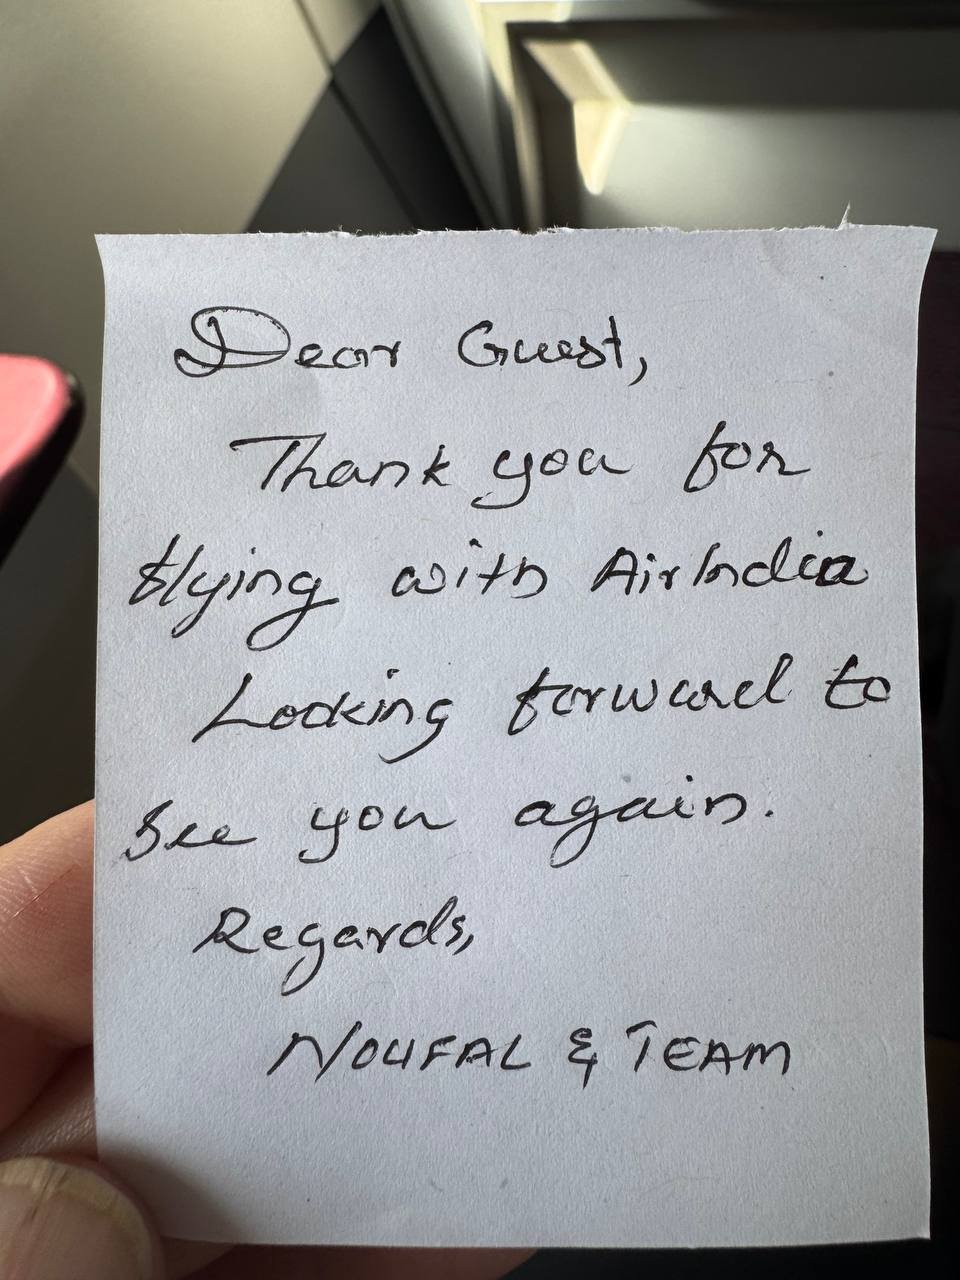 Dear Guest,
Thank you for
flying with Air India
Looking forward to
see you again.
Regards,
NOUFAL & TEAM